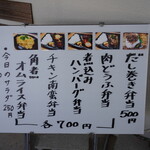 だし巻き弁当 500円
肉どうふ弁当
煮込み
ハンバーグ弁当
チキン南蛮弁当
角煮
オムライス弁当
各700円
今日のサラダ 250円